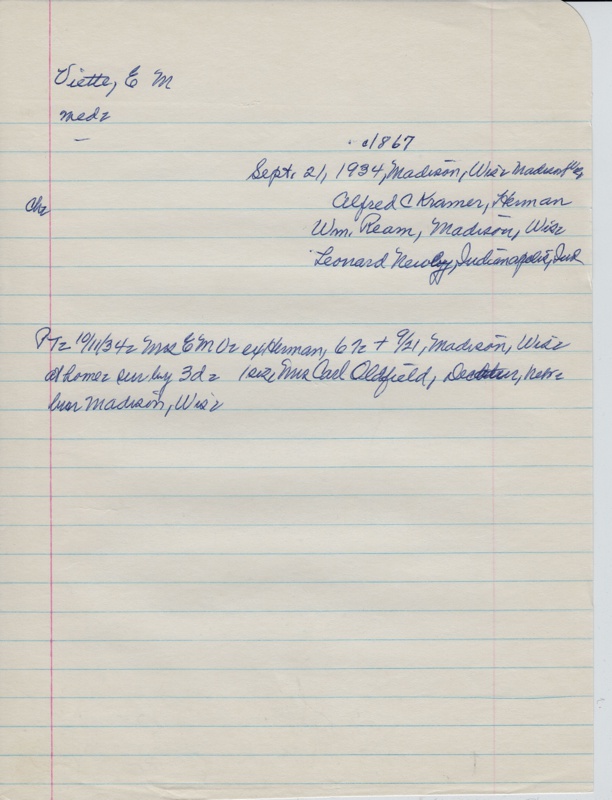 Viette, E M
medz
c1867
Sept. 21, 1934, Madison, Wisz Madison
Chz
Alfred C Kramer, Herman
Wm. Ream, Madison, Wisz
Leonard Newby, Indianapolis, Ind
PTz 10/11/34z Mrs E M Vz ex Herman, 67z + 9/21, Madison, Wisz
at homez sur by 3dz 1 sisz, Mrs Carl Oldfield, Decatur, nebrz
bur Madison, Wisz